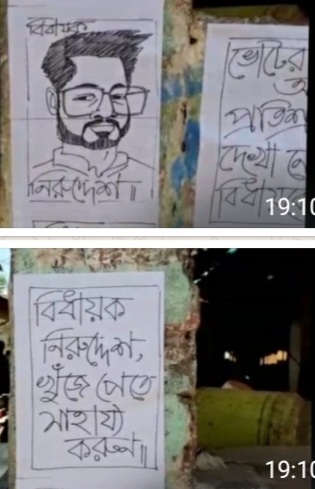 বিধায়ক
নিরুদ্দেশ॥
ভোটের
প্রতিশ
দেখা নে
বিধায়ক
19:10
বিধায়ক
নিরুদ্দেশ,
খুঁজে পেতে
সাহায্য
করুন॥
19:10